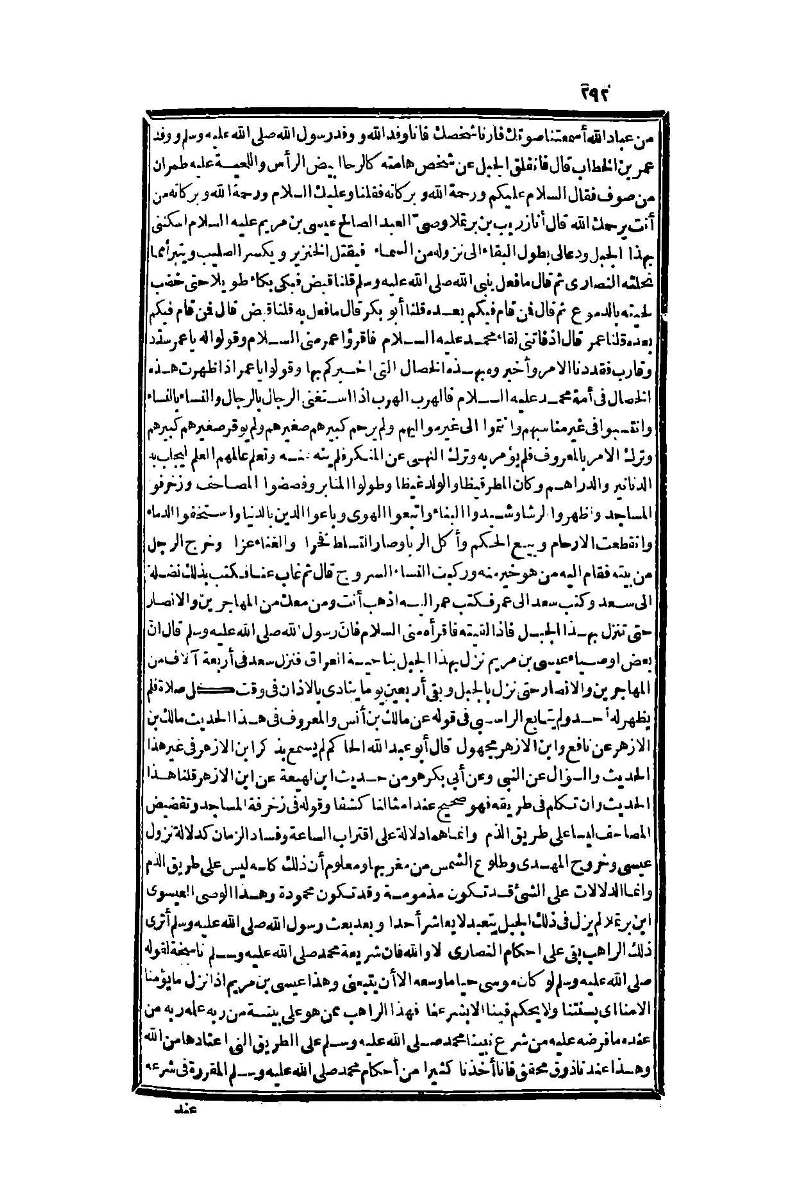 ٢٩٢
من عباد الله أسمعتنا صوتك فأرنا شخصك فانا وفد الله ووفد رسول الله صلى الله عليه وسلم ووفد
عمر بن الخطاب قال فانفلق الجبل عن شخص هامته كالرحا ابيض الرأس واللحية عليه طمران
من صوف فقال السلام عليكم ورحمة الله وبركاته فقلنا وعليك السلام ورحمة الله وبركاته من
أنت يرحمك الله قال أنا زريب بن برثملا وصى العبد الصالح عيسى بن مريم عليه السلام اسكننى
بهذا الجبل ودعا لى بطول البقاء الى نزوله من السماء فيقتل الخنزير ويكسر الصليب ويتبرأ مما
نحلته النصارى ثم قال ما فعل نبى الله صلى الله عليه وسلم قلنا قبض فبكى بكاء طويلا حتى خضب
لحيته بالدموع ثم قال فن قام فيكم بعده قلنا أبو بكر قال ما فعل به قلنا قبض قال فن قام فيكم
بعده قلنا عمر قال اذ فاتنى لقاء محمد عليه السلام فاقرؤا عمر منى السلام وقولوا له يا عمر سدّد
وقارب فقد دنا الامر وأخبروه بهذه الخصال التى اخبركم بها وقولوا يا عمر اذا ظهرت هذه
الخصال فى أمة محمد عليه السلام فالهرب الهرب اذا استغنى الرجال بالرجال والنساء بالنساء
وانتسبوا فى غير مناسبهم وانتموا الى غير مواليهم ولم يرحم كبيرهم صغيرهم ولم يوقر صغيرهم كبيرهم
وترك الامر بالمعروف فلم يؤمر به وترك النهى عن المنكر فلم ينه عنه وتعلم عالمهم العلم ليجلب به
الدنانير والدراهم وكان المطر قيظا والولد غيظا وطولوا المنابر وفضضوا المصاحف وزخرفوا
المساجد واظهروا الرشا وشيدوا البناء واتبعوا الهوى وباعوا الدين بالدنيا واستخفوا الدماء
وانقطعت الارحام وبيع الحكم وأكل الربا وصار التسلط فخرا والغناء عزا وخرج الرجل
من بيته فقام اليه من هو خير منه وركبت النساء السروج قال ثم غاب عنا فكتب بذلك نضلة
الى سعد وكتب سعد الى عمر فكتب عمر اليه اذهب أنت ومن معك من المهاجرين والانصار
حتى تنزل بهذا الجبل فاذا لقيته فاقرأه منى السلام فان رسول الله صلى الله عليه وسلم قال ان
بعض اوصياء عيسى بن مريم نزل بهذا الجبل بناحية العراق فنزل سعد فى أربعة آلاف من
المهاجرين والانصار حتى نزل بالجبل وبقى أربعين يوما ينادى بالاذان فى وقت كل صلاة فلم
يظهر له أحد ولم يتابع الراسبى فى قوله عن مالك بن أنس والمعروف فى هذا الحديث مالك بن
الازهر عن نافع وابن الازهر مجهول قال أبو عبد الله الحاكم لم يسمع بذكر ابن الازهر فى غير هذا
الحديث والسؤال عن النبى وعن أبى بكر هو من حديث ابن لهيعة عن ابن الازهر قلنا هذا
الحديث وان تكلم فى طريقه فهو صحيح عند امثالنا كشفا وقوله فى زخرفة المساجد وتفضيض
المصاحف ليسا على طريق الذم وانما هما دلالة على اقتراب الساعة وفساد الزمان كدلالة نزول
عيسى وخروج المهدى وطلوع الشمس من مغربها ومعلوم أن ذلك كله ليس على طريق الذم
وانما الدلالات على الشئ قد تكون مذمومة وقد تكون محمودة وهذا الوصى العيسوى
ابن برثملا لم يزل فى ذلك الجبل يتعبد لا يعاشر أحدا وبعد بعث رسول الله صلى الله عليه وسلم أترى
ذلك الراهب بقى على احكام النصارى لا والله فان شريعة محمد صلى الله عليه وسلم ناسخة لقوله
صلى الله عليه وسلم لو كان موسى حيا ما وسعه الا أن يتبعنى وهذا عيسى بن مريم اذا نزل ما يؤمنا
الا منا اى بسنتنا ولا يحكم فينا الا بشرعنا فهذا الراهب ممن هو على بينة من ربه علمه ربه من
عنده ما فرضه عليه من شرع نبينا محمد صلى الله عليه وسلم على الطريق التى اعتادها من الله
وهذا عندنا ذوق محقق فانا أخذنا كثيرا من أحكام محمد صلى الله عليه وسلم المقررة فى شرعه
عند